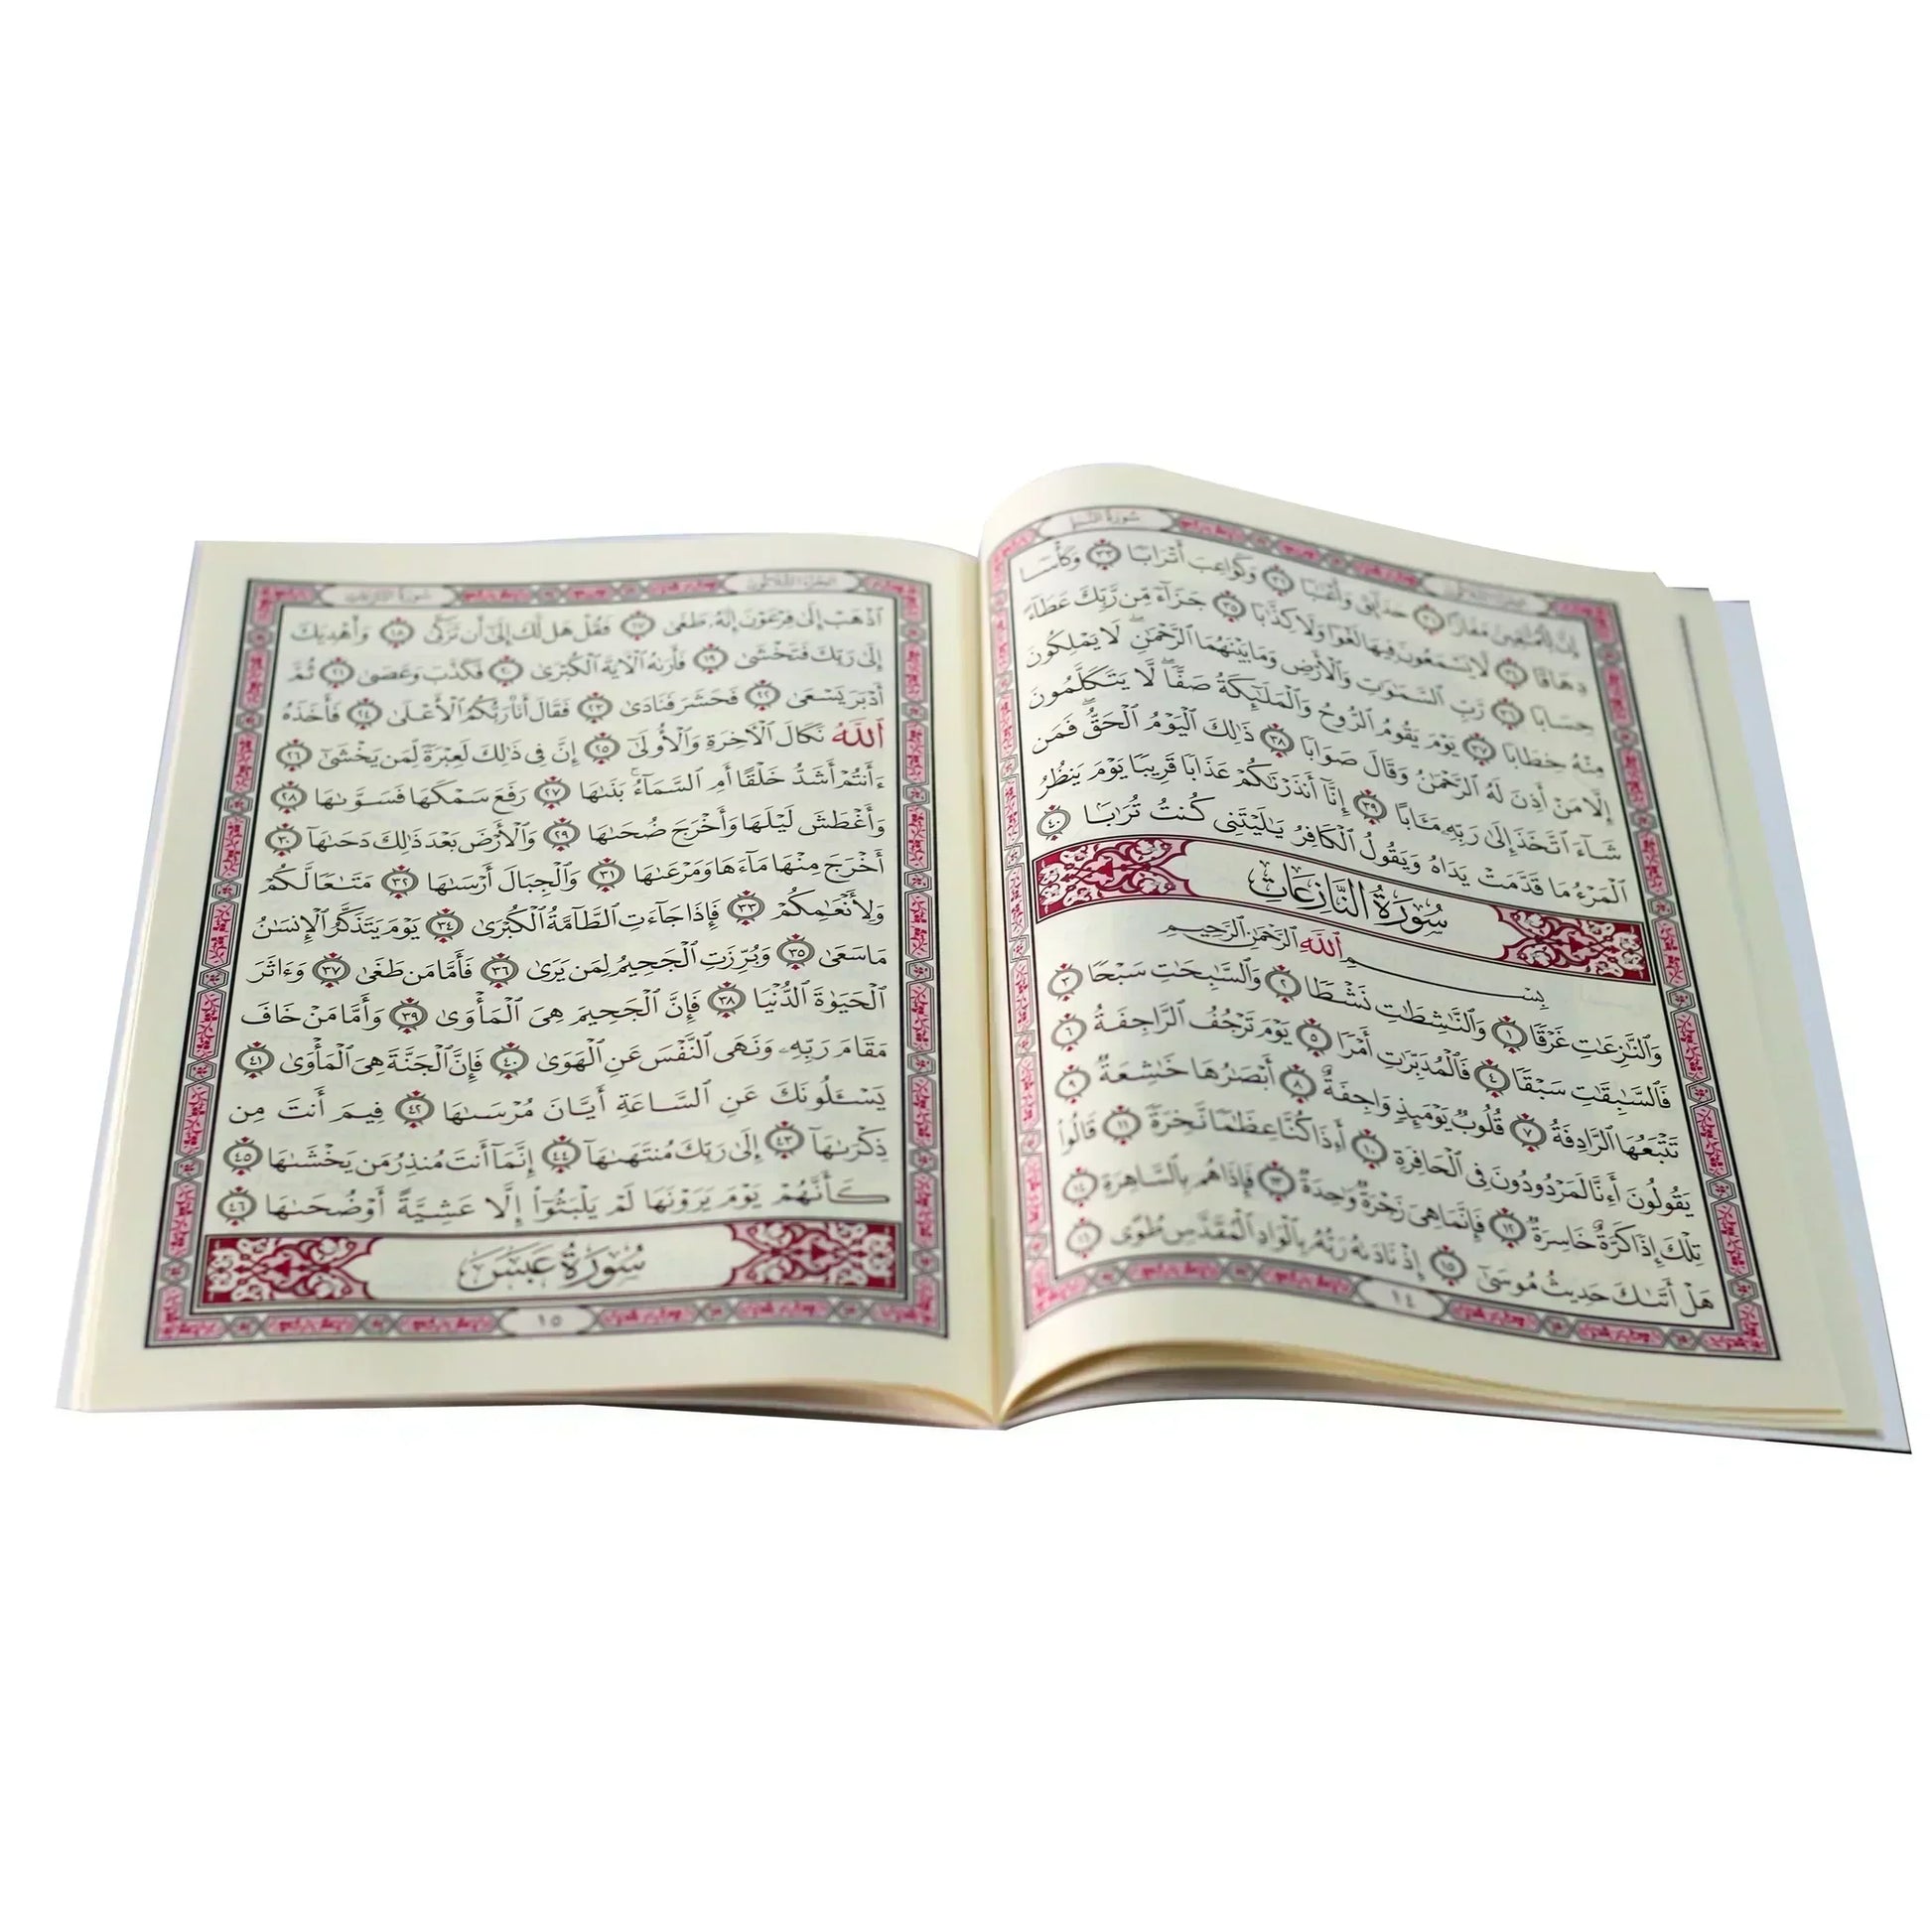 سُورَةُ النَّبَإِ الجُزْءُ الثَّلَاثُونَ
إِنَّ لِلْمُتَّقِينَ مَفَازًا ٣١ حَدَآئِقَ وَأَعْنَٰبًا ٣٢ وَكَوَاعِبَ أَتْرَابًا ٣٣ وَكَأْسًا
دِهَاقًا ٣٤ لَّا يَسْمَعُونَ فِيهَا لَغْوًا وَلَا كِذَّٰبًا ٣٥ جَزَآءً مِّن رَّبِّكَ عَطَآءً
حِسَابًا ٣٦ رَّبِّ ٱلسَّمَٰوَٰتِ وَٱلْأَرْضِ وَمَا بَيْنَهُمَا ٱلرَّحْمَٰنِ ۖ لَا يَمْلِكُونَ
مِنْهُ خِطَابًا ٣٧ يَوْمَ يَقُومُ ٱلرُّوحُ وَٱلْمَلَٰٓئِكَةُ صَفًّا ۖ لَّا يَتَكَلَّمُونَ
إِلَّا مَنْ أَذِنَ لَهُ ٱلرَّحْمَٰنُ وَقَالَ صَوَابًا ٣٨ ذَٰلِكَ ٱلْيَوْمُ ٱلْحَقُّ ۖ فَمَن
شَآءَ ٱتَّخَذَ إِلَىٰ رَبِّهِۦ مَـَٔابًا ٣٩ إِنَّآ أَنذَرْنَٰكُمْ عَذَابًا قَرِيبًا يَوْمَ يَنظُرُ
ٱلْمَرْءُ مَا قَدَّمَتْ يَدَاهُ وَيَقُولُ ٱلْكَافِرُ يَٰلَيْتَنِى كُنتُ تُرَٰبًۢا ٤٠
سُورَةُ النَّازِعَاتِ
بِسْمِ ٱللَّهِ ٱلرَّحْمَٰنِ ٱلرَّحِيمِ
وَٱلنَّٰزِعَٰتِ غَرْقًا ١ وَٱلنَّٰشِطَٰتِ نَشْطًا ٢ وَٱلسَّٰبِحَٰتِ سَبْحًا ٣
فَٱلسَّٰبِقَٰتِ سَبْقًا ٤ فَٱلْمُدَبِّرَٰتِ أَمْرًا ٥ يَوْمَ تَرْجُفُ ٱلرَّاجِفَةُ ٦
تَتْبَعُهَا ٱلرَّادِفَةُ ٧ قُلُوبٌ يَوْمَئِذٍ وَاجِفَةٌ ٨ أَبْصَٰرُهَا خَٰشِعَةٌ ٩
يَقُولُونَ أَءِنَّا لَمَرْدُودُونَ فِى ٱلْحَافِرَةِ ١٠ أَءِذَا كُنَّا عِظَٰمًا نَّخِرَةً ١١ قَالُوا۟
تِلْكَ إِذًا كَرَّةٌ خَاسِرَةٌ ١٢ فَإِنَّمَا هِىَ زَجْرَةٌ وَٰحِدَةٌ ١٣ فَإِذَا هُم بِٱلسَّاهِرَةِ ١٤
هَلْ أَتَىٰكَ حَدِيثُ مُوسَىٰٓ ١٥ إِذْ نَادَىٰهُ رَبُّهُۥ بِٱلْوَادِ ٱلْمُقَدَّسِ طُوًى ١٦
١٤
سُورَةُ النَّازِعَاتِ الجُزْءُ الثَّلَاثُونَ
ٱذْهَبْ إِلَىٰ فِرْعَوْنَ إِنَّهُۥ طَغَىٰ ١٧ فَقُلْ هَل لَّكَ إِلَىٰٓ أَن تَزَكَّىٰ ١٨ وَأَهْدِيَكَ
إِلَىٰ رَبِّكَ فَتَخْشَىٰ ١٩ فَأَرَىٰهُ ٱلْـَٔايَةَ ٱلْكُبْرَىٰ ٢٠ فَكَذَّبَ وَعَصَىٰ ٢١ ثُمَّ
أَدْبَرَ يَسْعَىٰ ٢٢ فَحَشَرَ فَنَادَىٰ ٢٣ فَقَالَ أَنَا۠ رَبُّكُمُ ٱلْأَعْلَىٰ ٢٤ فَأَخَذَهُ
ٱللَّهُ نَكَالَ ٱلْـَٔاخِرَةِ وَٱلْأُولَىٰٓ ٢٥ إِنَّ فِى ذَٰلِكَ لَعِبْرَةً لِّمَن يَخْشَىٰٓ ٢٦
ءَأَنتُمْ أَشَدُّ خَلْقًا أَمِ ٱلسَّمَآءُ ۚ بَنَىٰهَا ٢٧ رَفَعَ سَمْكَهَا فَسَوَّىٰهَا ٢٨
وَأَغْطَشَ لَيْلَهَا وَأَخْرَجَ ضُحَىٰهَا ٢٩ وَٱلْأَرْضَ بَعْدَ ذَٰلِكَ دَحَىٰهَآ ٣٠
أَخْرَجَ مِنْهَا مَآءَهَا وَمَرْعَىٰهَا ٣١ وَٱلْجِبَالَ أَرْسَىٰهَا ٣٢ مَتَٰعًا لَّكُمْ
وَلِأَنْعَٰمِكُمْ ٣٣ فَإِذَا جَآءَتِ ٱلطَّآمَّةُ ٱلْكُبْرَىٰ ٣٤ يَوْمَ يَتَذَكَّرُ ٱلْإِنسَٰنُ
مَا سَعَىٰ ٣٥ وَبُرِّزَتِ ٱلْجَحِيمُ لِمَن يَرَىٰ ٣٦ فَأَمَّا مَن طَغَىٰ ٣٧ وَءَاثَرَ
ٱلْحَيَوٰةَ ٱلدُّنْيَا ٣٨ فَإِنَّ ٱلْجَحِيمَ هِىَ ٱلْمَأْوَىٰ ٣٩ وَأَمَّا مَنْ خَافَ
مَقَامَ رَبِّهِۦ وَنَهَى ٱلنَّفْسَ عَنِ ٱلْهَوَىٰ ٤٠ فَإِنَّ ٱلْجَنَّةَ هِىَ ٱلْمَأْوَىٰ ٤١
يَسْـَٔلُونَكَ عَنِ ٱلسَّاعَةِ أَيَّانَ مُرْسَىٰهَا ٤٢ فِيمَ أَنتَ مِن
ذِكْرَىٰهَآ ٤٣ إِلَىٰ رَبِّكَ مُنتَهَىٰهَآ ٤٤ إِنَّمَآ أَنتَ مُنذِرُ مَن يَخْشَىٰهَا ٤٥
كَأَنَّهُمْ يَوْمَ يَرَوْنَهَا لَمْ يَلْبَثُوٓا۟ إِلَّا عَشِيَّةً أَوْ ضُحَىٰهَا ٤٦
سُورَةُ عَبَسَ
١٥